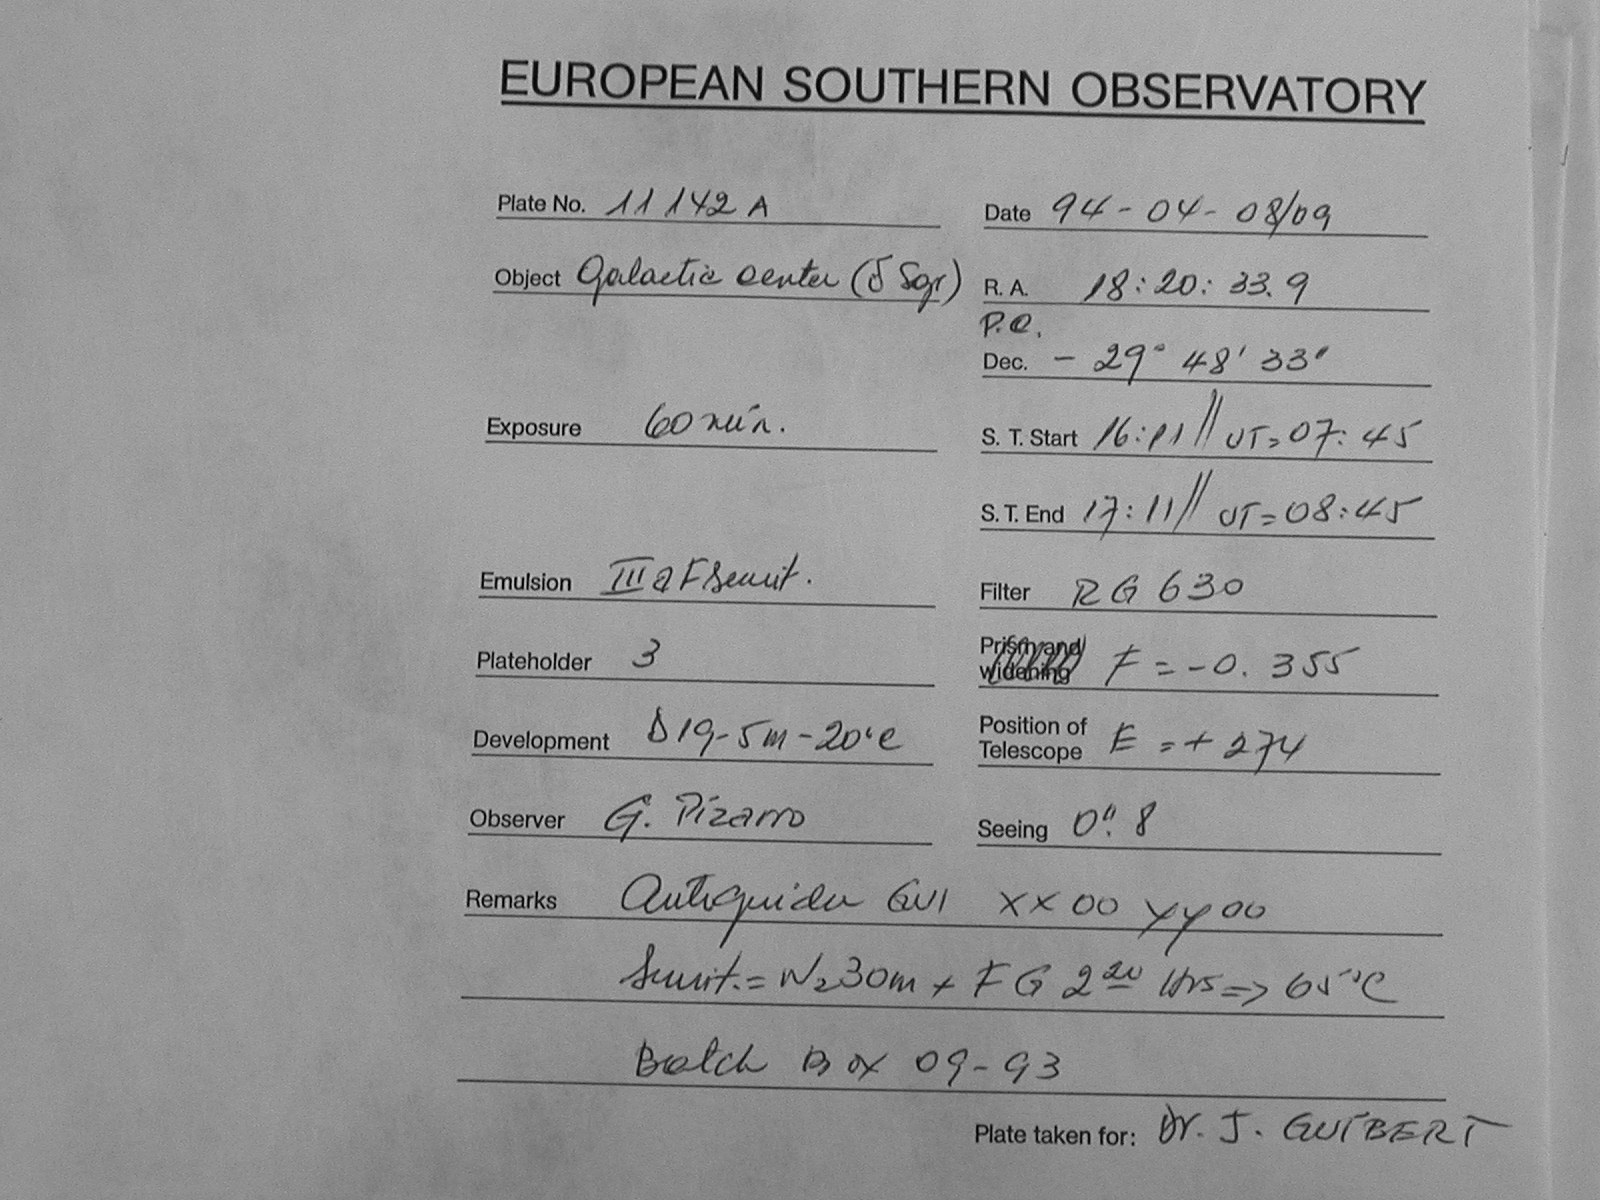 EUROPEAN SOUTHERN OBSERVATORY
Plate No. 11142 A
Date 94-04-08/09
Object Galactic center (δ Sgr)
R. A. 18:20:33.9
P.C.
Dec. -29° 48' 33"
Exposure 60 min.
S. T. Start 16:11 // UT=07:45
S. T. End 17:11 // UT=08:45
Emulsion III a F sensit.
Filter RG 630
Plateholder 3
Prism and widening F = -0.355
Development D19-5m-20°C
Position of Telescope E = + 274
Observer G. Pizarro
Seeing 0".8
Remarks Autoguider GUI XX 00 YY 00
Sensit. = N2 30m + FG 2 20 Hrs => 65°C
Batch Box 09-93
Plate taken for: Dr. J. GUIBERT